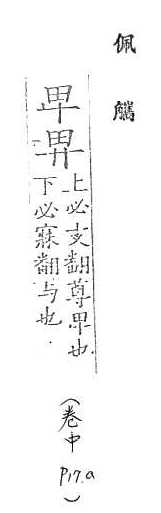 佩觿
卑畀
上必支翻尊卑也
下必寐翻与也.
(卷中 P17.a)